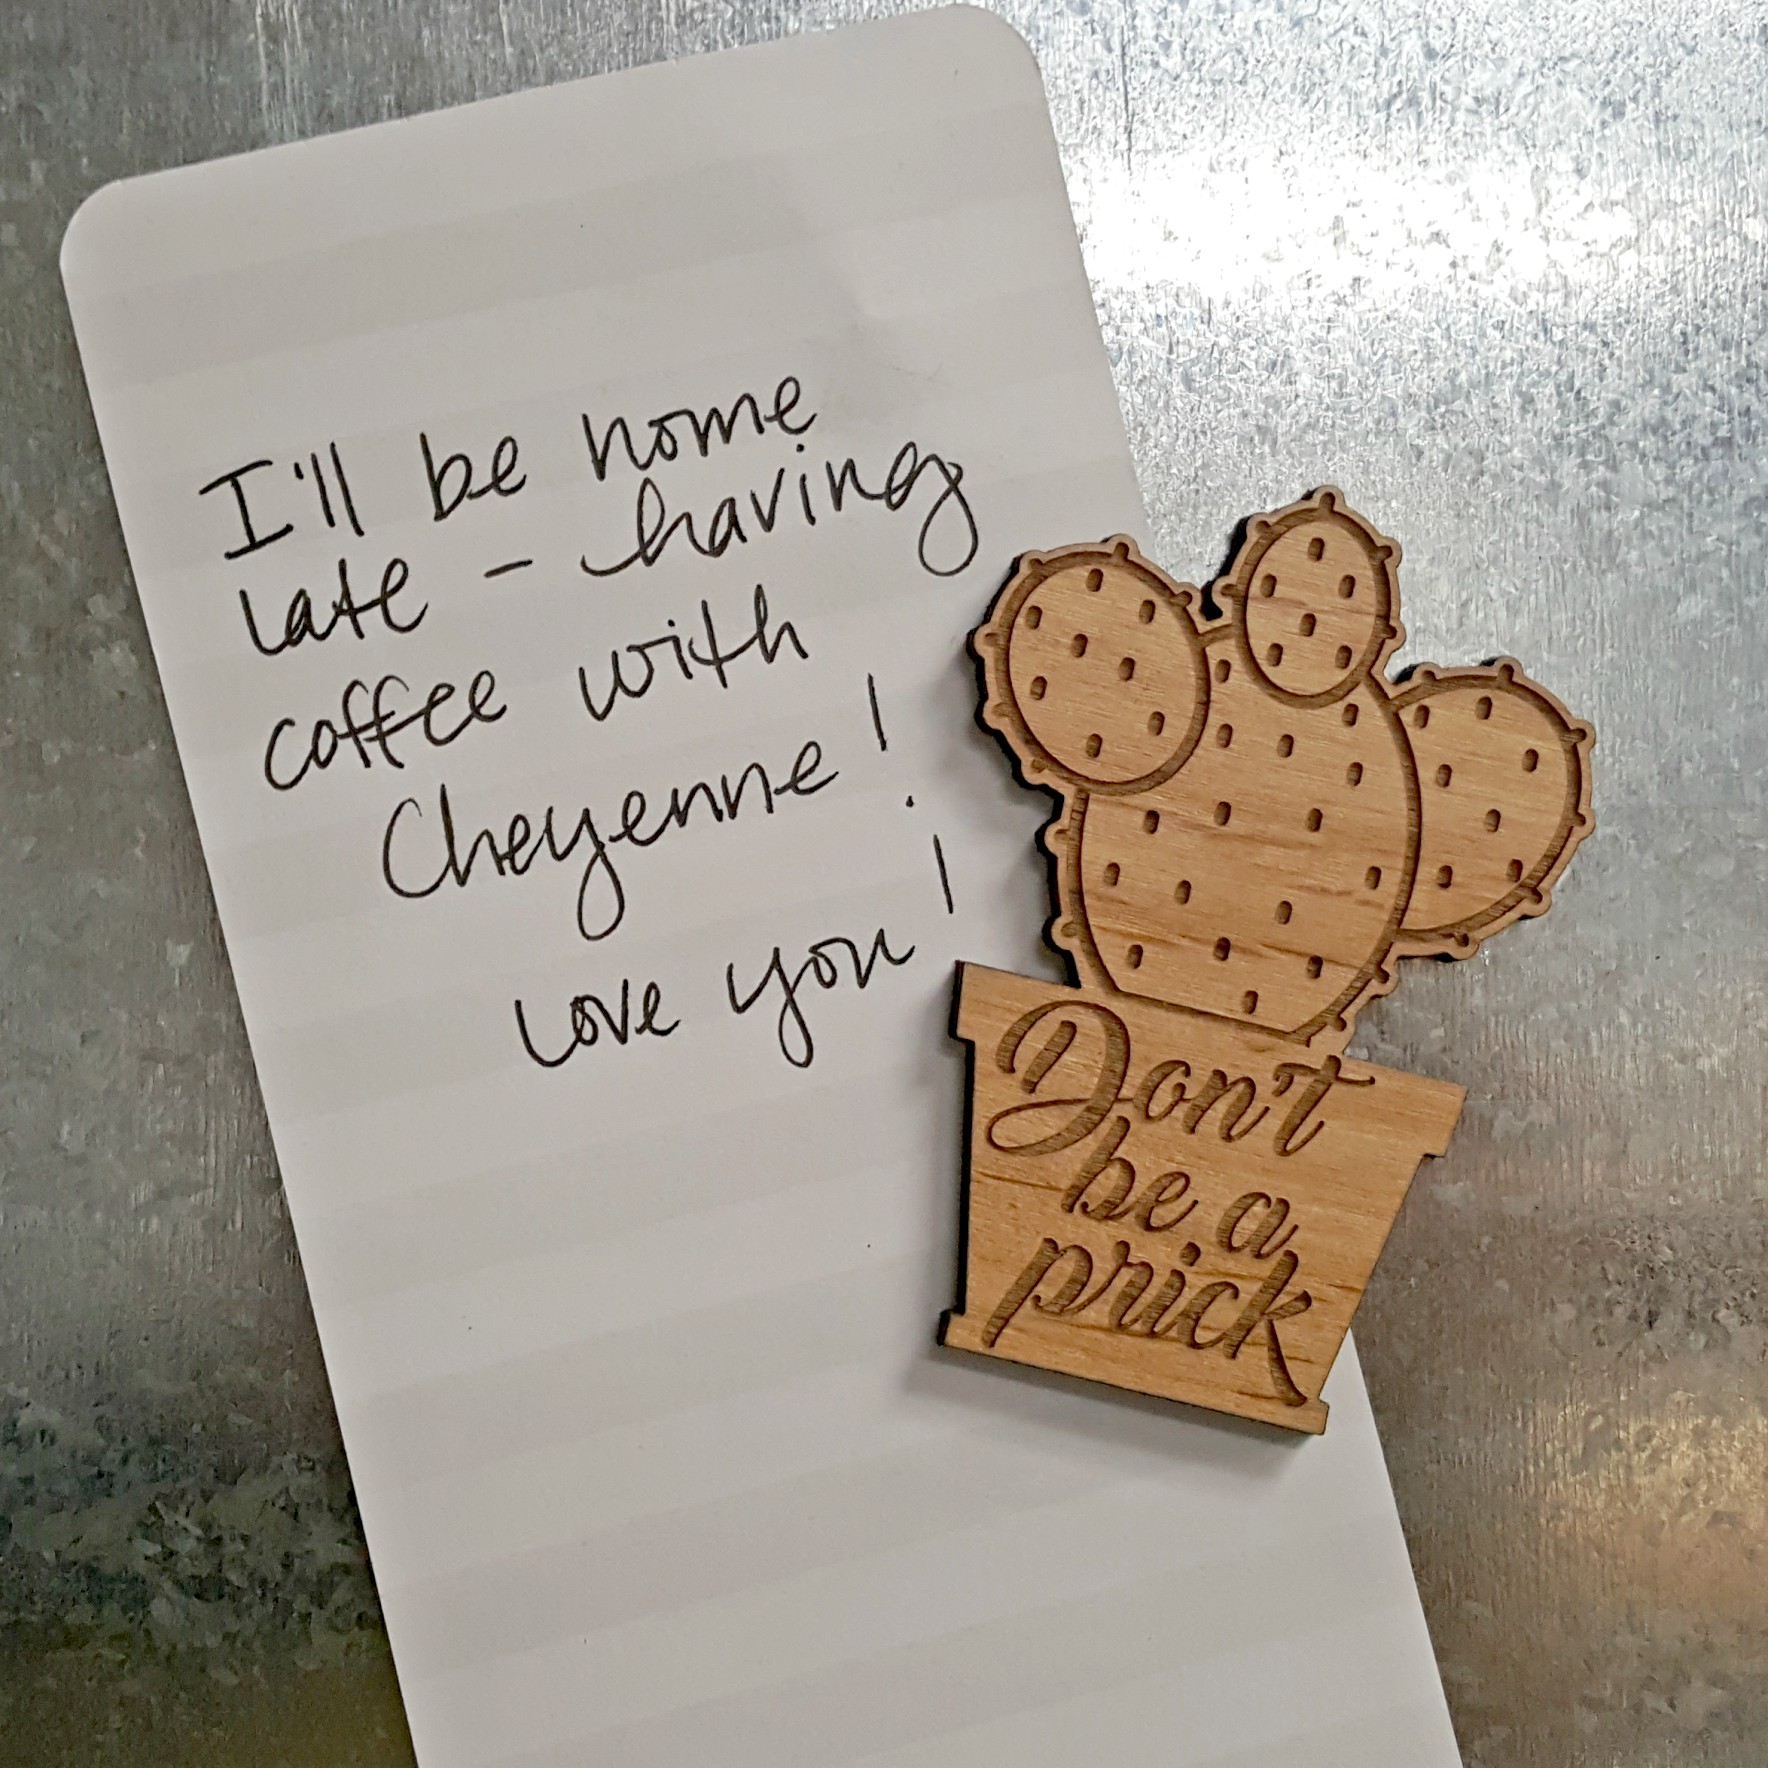 I'll be home
late - having
coffee with
Cheyenne!
love you!
Don't
be a
prick